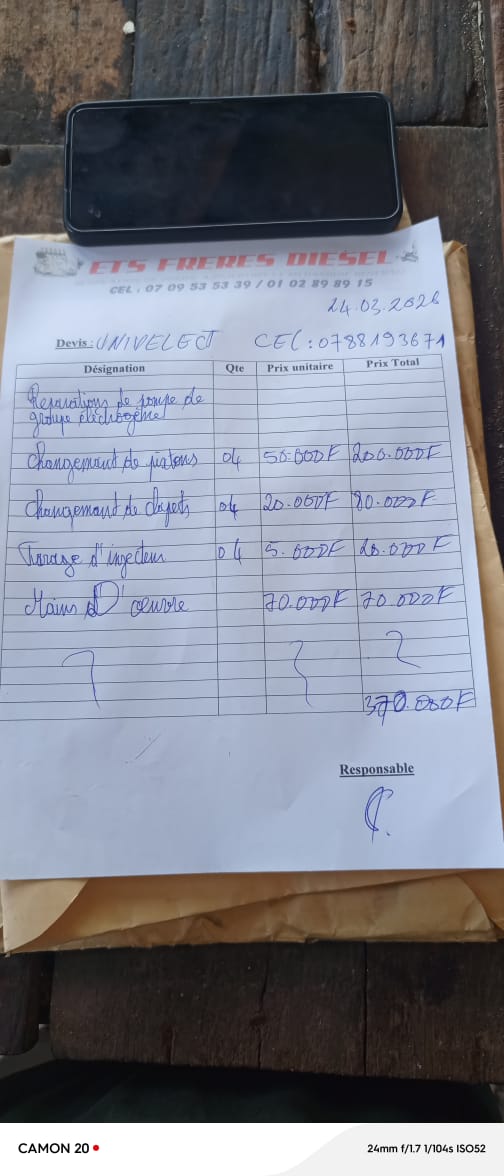 ETS FRERES DIESEL
CEL : 07 09 53 53 39 / 01 02 89 89 15
24.03.2026
Devis : UNIVELECT CEL : 0788193671
Désignation Qte Prix unitaire Prix Total
Réparations de pompe de
groupe éléctrogène
Changement de pistons 04 50.000F 200.000F
Changement de clapets 04 20.000F 80.000F
Tarage d'injecteur 04 5.000F 20.000F
Mains D'œuvre 70.000F 70.000F
370.000F
Responsable
CAMON 20
24mm f/1.7 1/104s ISO52